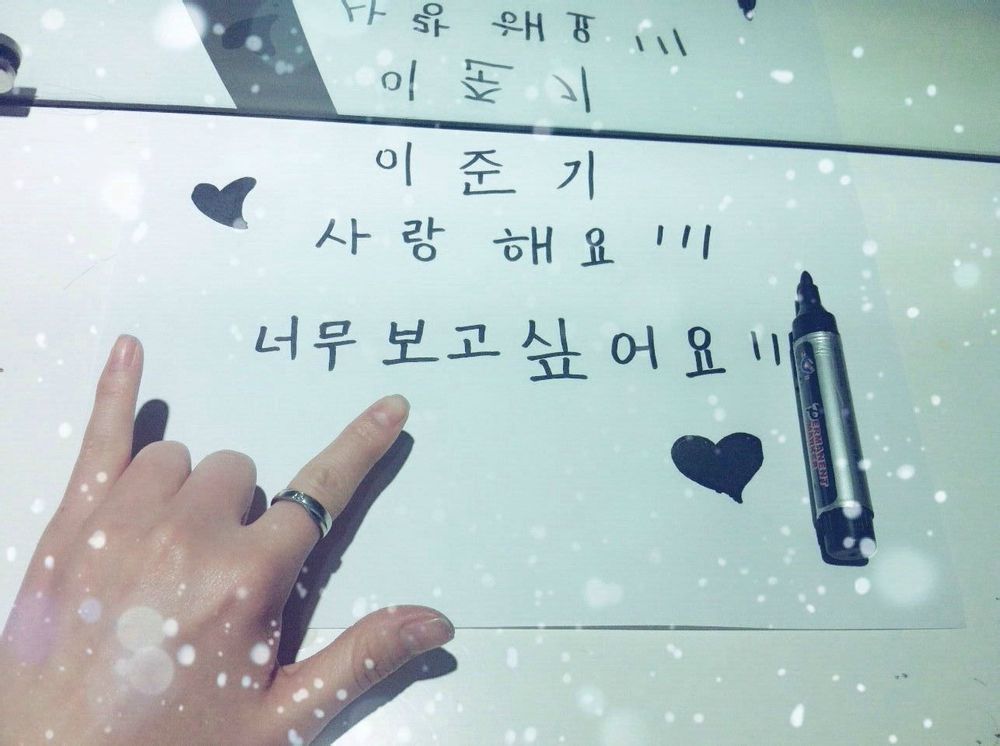 이 준 기
사 랑 해 요 !!!
너무 보고 싶 어 요 !!!
PERMANENT